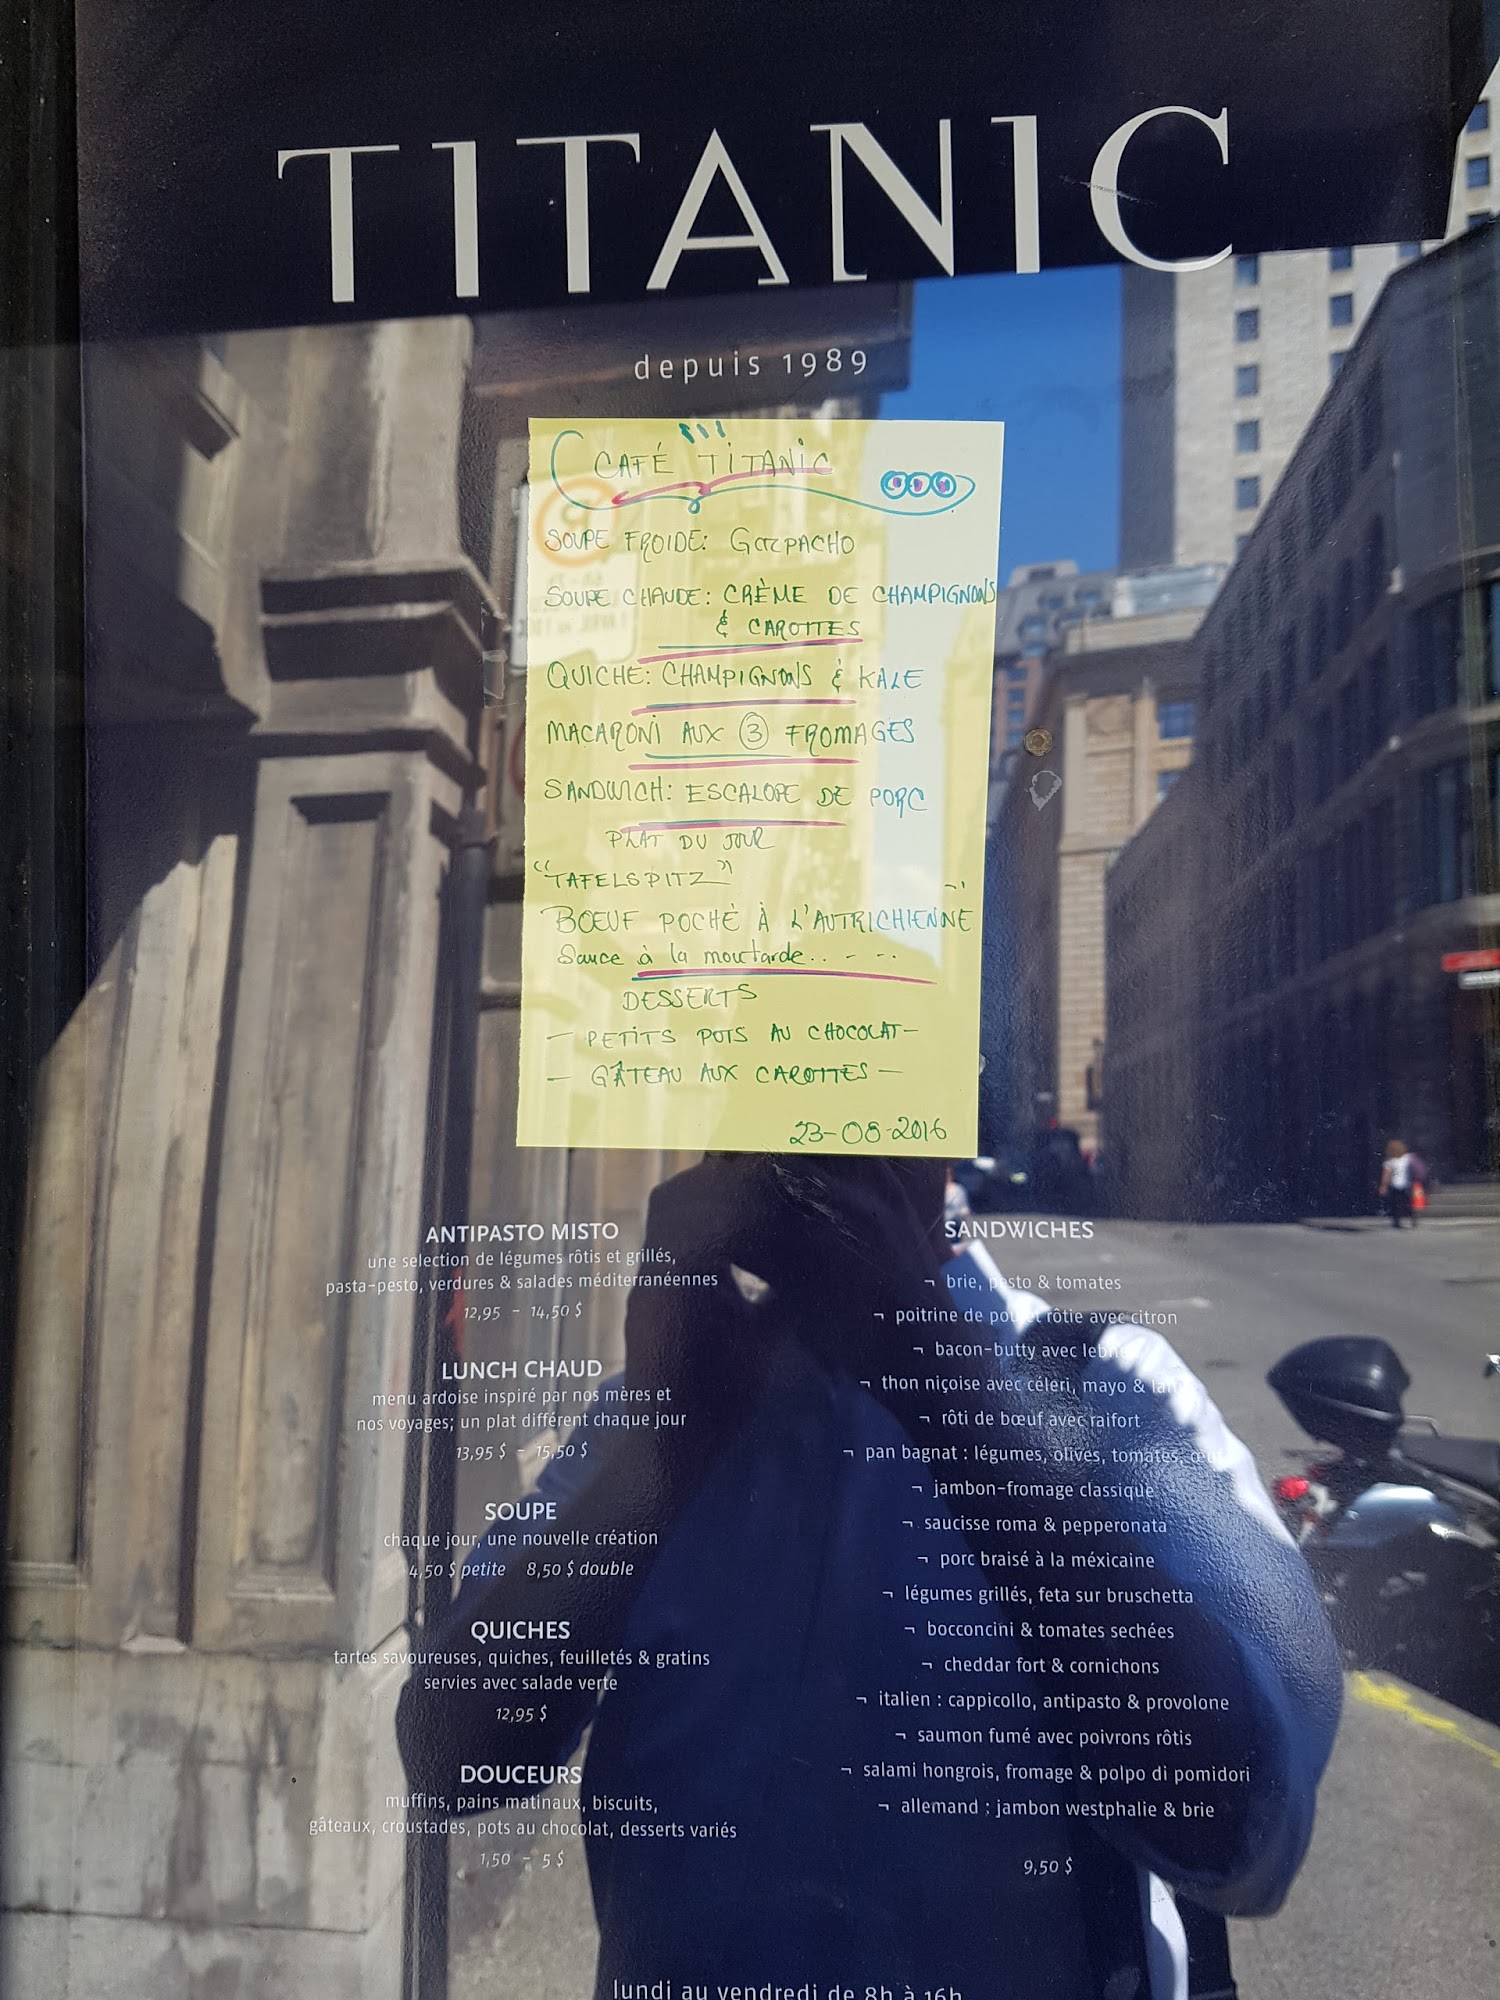 TITANIC
depuis 1989
CAFÉ TITANIC
SOUPE FROIDE: GAZPACHO
SOUPE CHAUDE: CRÈME DE CHAMPIGNONS
& CAROTTES
QUICHE: CHAMPIGNONS & KALE
MACARONI AUX 3 FROMAGES
SANDWICH: ESCALOPE DE PORC
PLAT DU JOUR
"TAFELSPITZ"
BŒUF POCHÉ À L'AUTRICHIENNE
Sauce à la moutarde.. - - ..
DESSERTS
- PETITS POTS AU CHOCOLAT-
- GÂTEAU AUX CAROTTES -
23-08-2016
ANTIPASTO MISTO
une selection de légumes rôtis et grillés,
pasta-pesto, verdures & salades méditerranéennes
12,95 - 14,50 $
LUNCH CHAUD
menu ardoise inspiré par nos mères et
nos voyages; un plat différent chaque jour
13,95 $ - 15,50 $
SOUPE
chaque jour, une nouvelle création
4,50 $ petite 8,50 $ double
QUICHES
tartes savoureuses, quiches, feuilletés & gratins
servies avec salade verte
12,95 $
DOUCEURS
muffins, pains matinaux, biscuits,
gâteaux, croustades, pots au chocolat, desserts variés
1,50 - 5 $
SANDWICHES
¬ brie, pesto & tomates
¬ poitrine de poulet rôtie avec citron
¬ bacon-butty avec
¬ thon niçoise avec céleri, mayo &
¬ rôti de bœuf avec raifort
¬ pan bagnat : légumes, olives, tomates,
¬ jambon-fromage classique
¬ saucisse roma & pepperonata
¬ porc braisé à la méxicaine
¬ légumes grillés, feta sur bruschetta
¬ bocconcini & tomates sechées
¬ cheddar fort & cornichons
¬ italien : cappicollo, antipasto & provolone
¬ saumon fumé avec poivrons rôtis
¬ salami hongrois, fromage & polpo di pomidori
¬ allemand : jambon westphalie & brie
9,50 $
lundi au vendredi de 8h à 16h